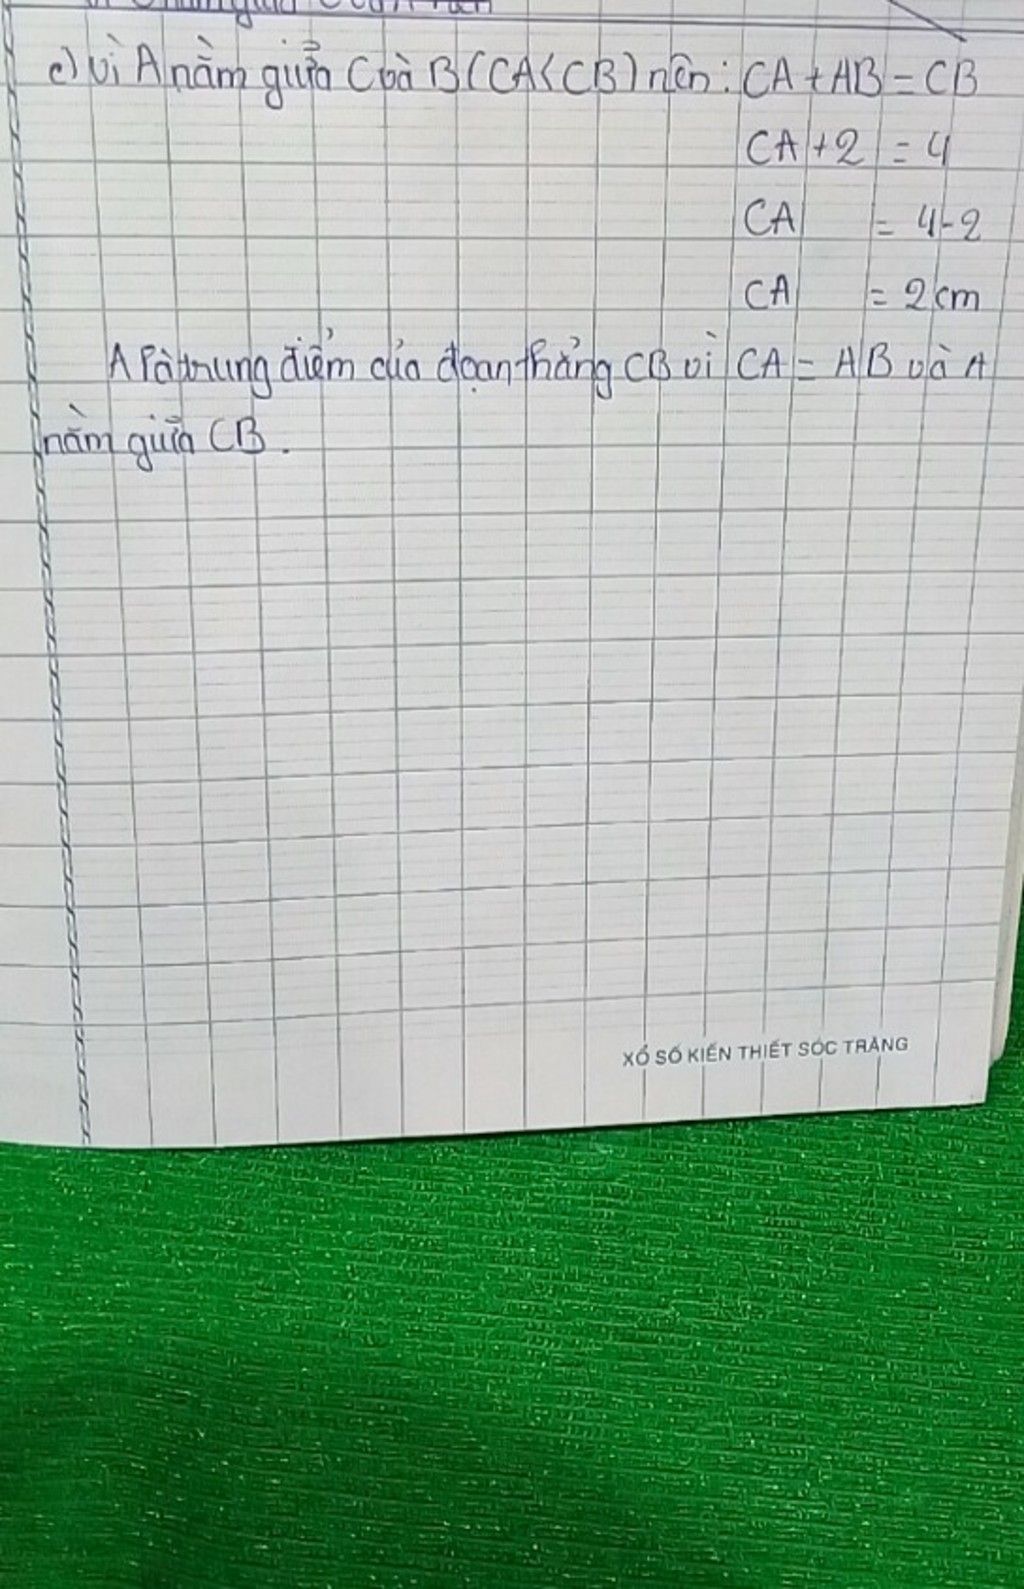 c) vì A nằm giữa C và B (CA < CB) nên: CA + AB = CB
CA + 2 = 4
CA = 4 - 2
CA = 2 cm
A là trung điểm của đoạn thẳng CB vì CA = AB và A
nằm giữa CB.
XỔ SỐ KIẾN THIẾT SÓC TRĂNG